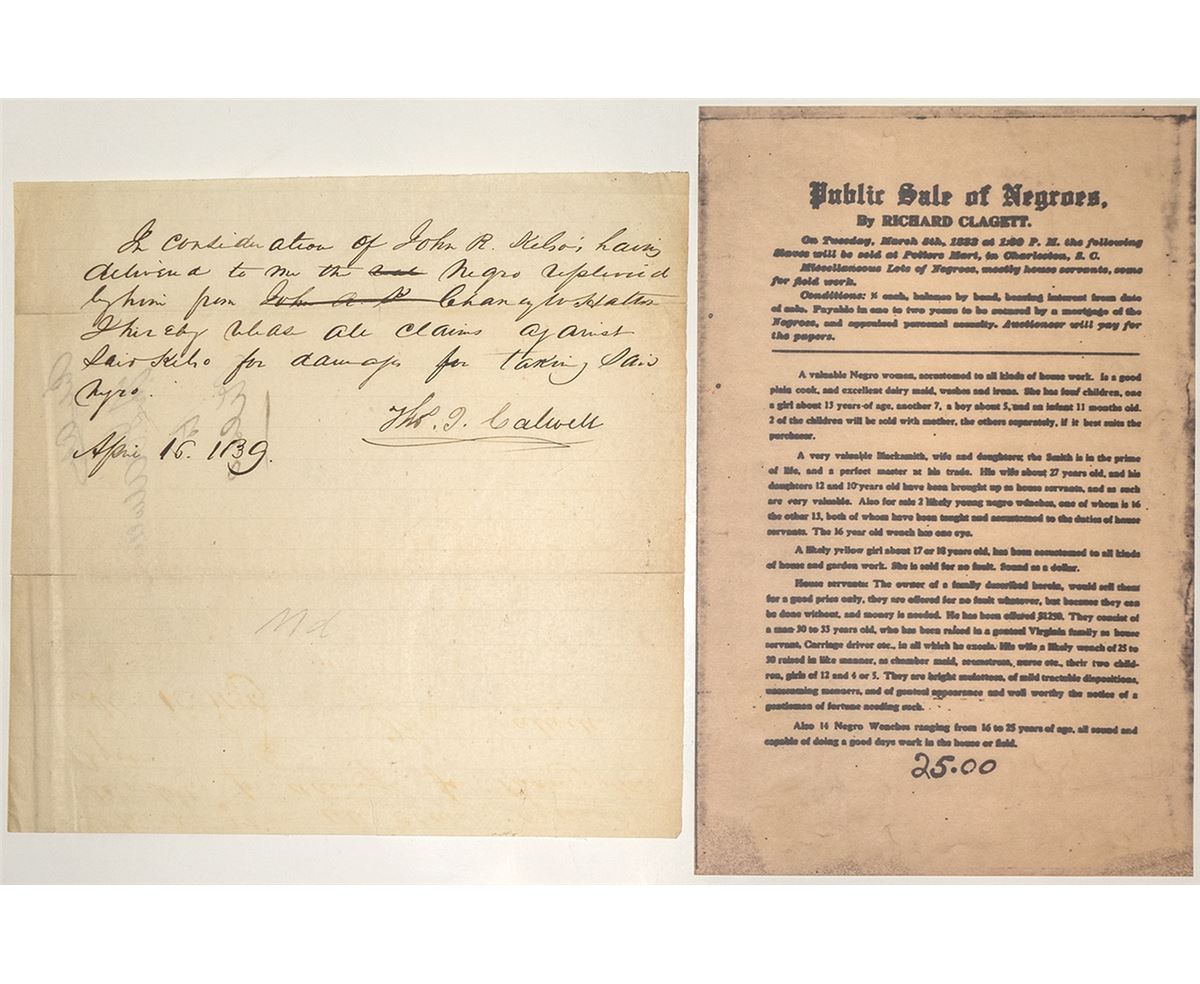 In consideration of John R. Kelso's having
delivered to me the Negro replevied
by him from Chancy
I hereby releas all claims against
Said Kelso for damages for taking Said
negro.
Thos. J. Calwell
April 16. 1839.
Public Sale of Negroes,
By RICHARD CLAGETT.
On Tuesday, March 5th, 1833 at 1:00 P. M. the following
Slaves will be sold at Potters Mart, in Charleston, S. C.
Miscellaneous Lots of Negroes, mostly house servants, some
for field work.
Conditions: ½ cash, balance by bond, bearing interest from date
of sale. Payable in one to two years to be secured by a mortgage of the
Negroes, and appraised personal security. Auctioneer will pay for
the papers.
A valuable Negro woman, accustomed to all kinds of house work. Is a good
plain cook, and excellent dairy maid, washes and irons. She has four children, one
a girl about 13 years of age, another 7, a boy about 5, and an infant 11 months old.
2 of the children will be sold with mother, the others separately, if it best suits the
purchaser.
A very valuable Blacksmith, wife and daughters; the Smith is in the prime
of life, and a perfect master at his trade. His wife about 27 years old, and his
daughters 12 and 10 years old have been brought up as house servants, and as such
are very valuable. Also for sale 2 likely young negro wenches, one of whom is 16
the other 13, both of whom have been taught and accustomed to the duties of house
servants. The 16 year old wench has one eye.
A likely yellow girl about 17 or 18 years old, has been accustomed to all kinds
of house and garden work. She is sold for no fault. Sound as a dollar.
House servants: The owner of a family described herein, would sell them
for a good price only, they are offered for no fault whatever, but because they can
be done without, and money is needed. He has been offered $1250. They consist of
a man 30 to 33 years old, who has been raised in a genteel Virginia family as house
servant, Carriage driver etc., in all which he excels. His wife a likely wench of 25 to
30 raised in like manner, as chamber maid, seamstress, nurse etc., their two child-
ren, girls of 12 and 4 or 5. They are bright mulattoes, of mild tractable dispositions,
unassuming manners, and of genteel appearance and well worthy the notice of a
gentleman of fortune needing such.
Also 14 Negro Wenches ranging from 16 to 25 years of age, all sound and
capable of doing a good days work in the house or field.
25.00